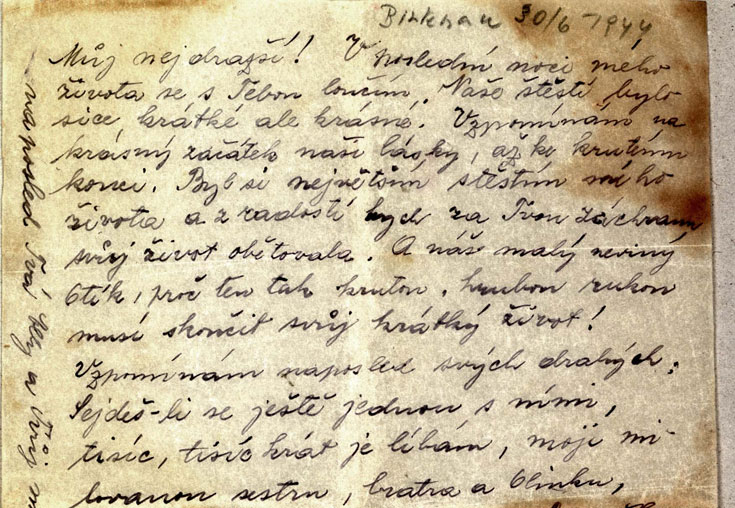 Birkenau 30/6 1944
Můj nejdražší! V poslední noci mého
života se s Tebou loučím. Naše štěstí bylo
sice krátké ale krásné. Vzpomínám na
krásný začátek naší lásky, až ke krutému
konci. Byl si největším štěstím mého
života a z radostí bych za Tvou záchranu
svůj život obětovala. A náš malý neviný
Otík, proč ten tak krutou, hrubou rukou
musí skončit svůj krátký život!
Vzpomínám naposled svých drahých.
Sejdeš-li se ještě jednou s nimi,
tisíc, tisíc krát je líbám, moji mi-
lovanou sestru, bratra a Olinku,
naposled Tvá
a Tvůj